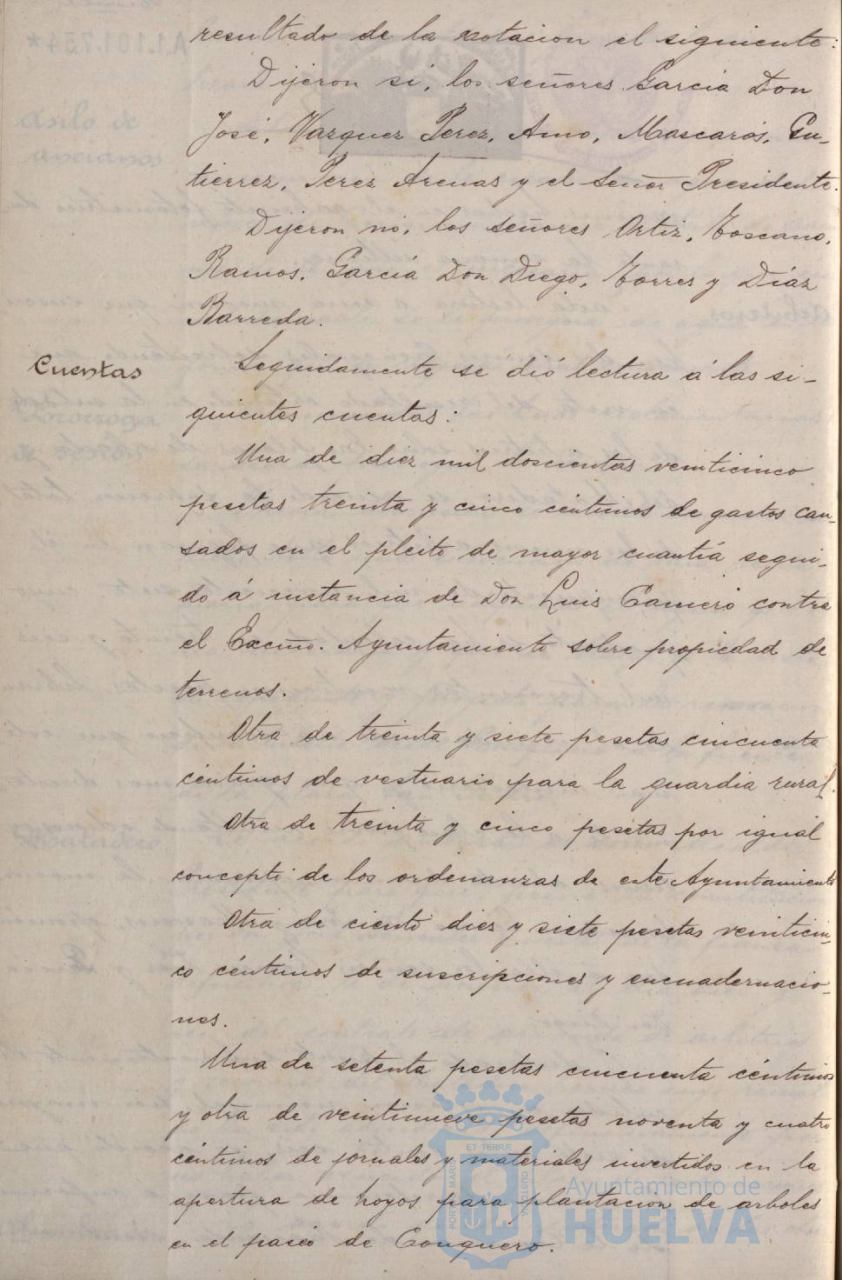 resultado de la votacion el siguiente:
Dijeron si, los señores Garcia Don
José, Vazquez Perez, Amo, Mascarós, Gu-
tierrez, Perez Arenas y el Señor Presidente.
Dijeron no, los señores Ortiz, Toscano,
Ramos, García Don Diego, Torres y Díaz
Barreda.
Cuentas
Seguidamente se dió lectura á las si-
guientes cuentas:
Una de diez mil doscientas veinticinco
pesetas treinta y cinco céntimos de gastos cau-
sados en el pleito de mayor cuantía segui-
do á instancia de Don Luis Camero contra
el Excmo. Ayuntamiento sobre propiedad de
terrenos.
Otra de treinta y siete pesetas cincuenta
céntimos de vestuario para la guardia rural.
Otra de treinta y cinco pesetas por igual
concepto de los ordenanzas de este Ayuntamiento
Otra de ciento diez y siete pesetas veinticin-
co céntimos de suscripciones y encuadernacio-
nes.
Una de setenta pesetas cincuenta céntimos
y otra de veintinueve pesetas noventa y cuatro
céntimos de jornales y materiales invertidos en la
apertura de hoyos para plantación de arboles
en el paseo de Conquero.
Ayuntamiento de
HUELVA